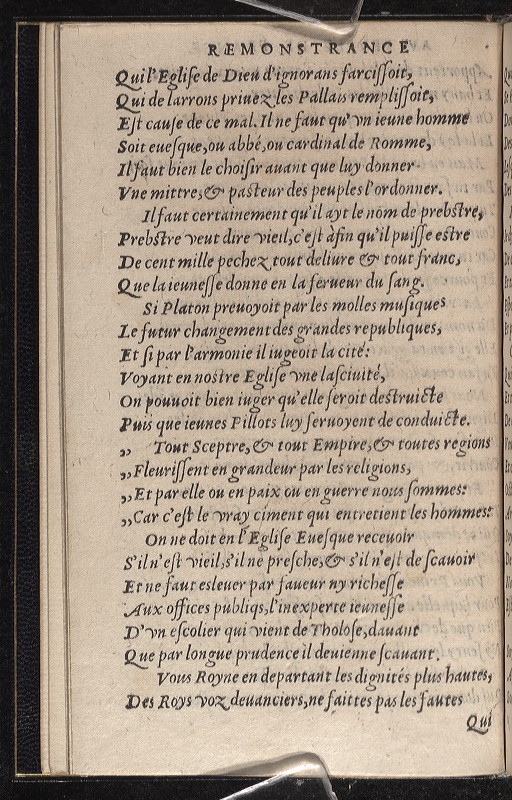 REMONSTRANCE
Qui l'Egliſe de Dieu d'ignorans farciſſoit,
Qui de larrons priuez les Pallais rempliſſoit,
Eſt cauſe de ce mal. Il ne faut qu'vn ieune homme
Soit eueſque, ou abbé, ou cardinal de Romme,
Il faut bien le choiſir auant que luy donner
Vne mittre, & paſteur des peuples l'ordonner.
Il faut certainement qu'il ayt le nom de prebſtre,
Prebſtre veut dire vieil, c'eſt àfin qu'il puiſſe eſtre
De cent mille pechez tout deliure & tout franc,
Que la ieuneſſe donne en la ferueur du ſang.
Si Platon preuoyoit par les molles muſiques
Le futur changement des grandes republiques,
Et ſi par l'armonie il iugeoit la cité:
Voyant en noſtre Egliſe vne laſciuité,
On pouuoit bien iuger qu'elle ſeroit deſtruicte
Puis que ieunes Pillots luy ſeruoyent de conduicte.
„ Tout Sceptre, & tout Empire, & toutes regions
„Fleuriſſent en grandeur par les religions,
„Et par elle ou en paix ou en guerre nous ſommes:
„Car c'eſt le vray ciment qui entretient les hommes:
On ne doit en l'Egliſe Eueſque receuoir
S'il n'eſt vieil, s'il ne preſche, & s'il n'eſt de ſcauoir
Et ne faut eſleuer par faueur ny richeſſe
Aux offices publiqs, l'inexperte ieuneſſe
D'vn eſcolier qui vient de Tholoſe, dauant
Que par longue prudence il deuienne ſcauant.
Vous Royne en departant les dignités plus hautes,
Des Roys voz deuanciers, ne faittes pas les fautes
Qui